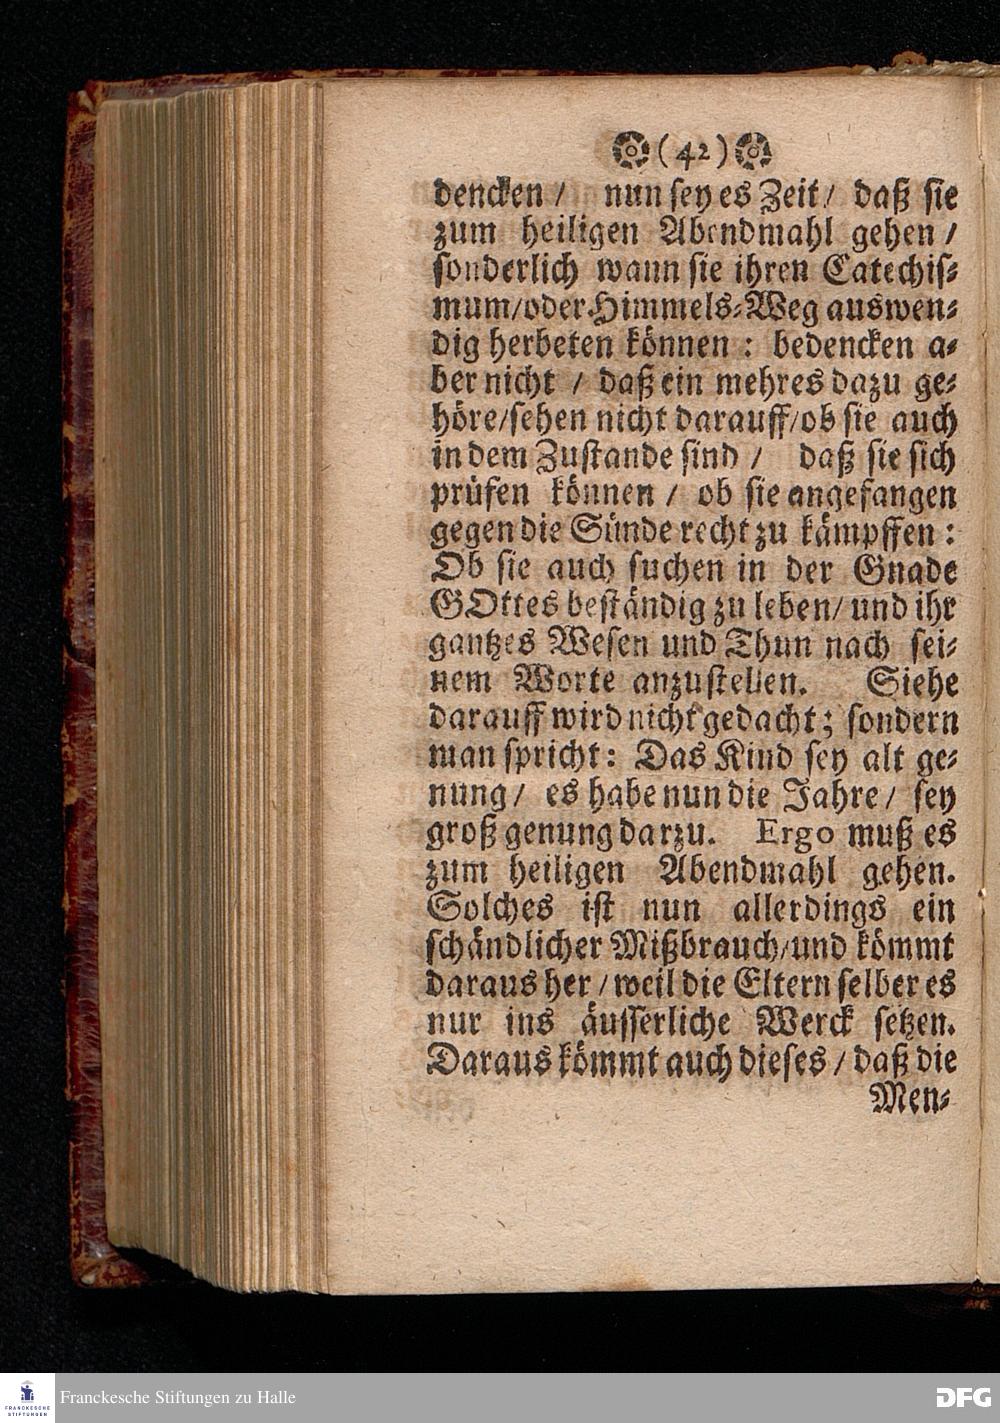 (42)
dencken / nun sey es Zeit / daß sie
zum heiligen Abendmahl gehen /
sonderlich wann sie ihren Catechis-
mum/oder Himmels-Weg auswen-
dig herbeten können : bedencken a-
ber nicht / daß ein mehres dazu ge-
höre/sehen nicht darauff/ob sie auch
in dem Zustande sind / daß sie sich
prüfen können / ob sie angefangen
gegen die Sünde recht zu kämpffen :
Ob sie auch suchen in der Gnade
GOttes beständig zu leben/ und ihr
gantzes Wesen und Thun nach sei-
nem Worte anzustellen. Siehe
darauff wird nicht gedacht; sondern
man spricht: Das Kind sey alt ge-
nung/ es habe nun die Jahre/ sey
groß genung darzu. Ergo muß es
zum heiligen Abendmahl gehen.
Solches ist nun allerdings ein
schändlicher Mißbrauch/und kömmt
daraus her / weil die Eltern selber es
nur ins äusserliche Werck setzen.
Daraus kömmt auch dieses / daß die
Men-
FRANCKESCHE
STIFTUNGEN
Franckesche Stiftungen zu Halle
DFG